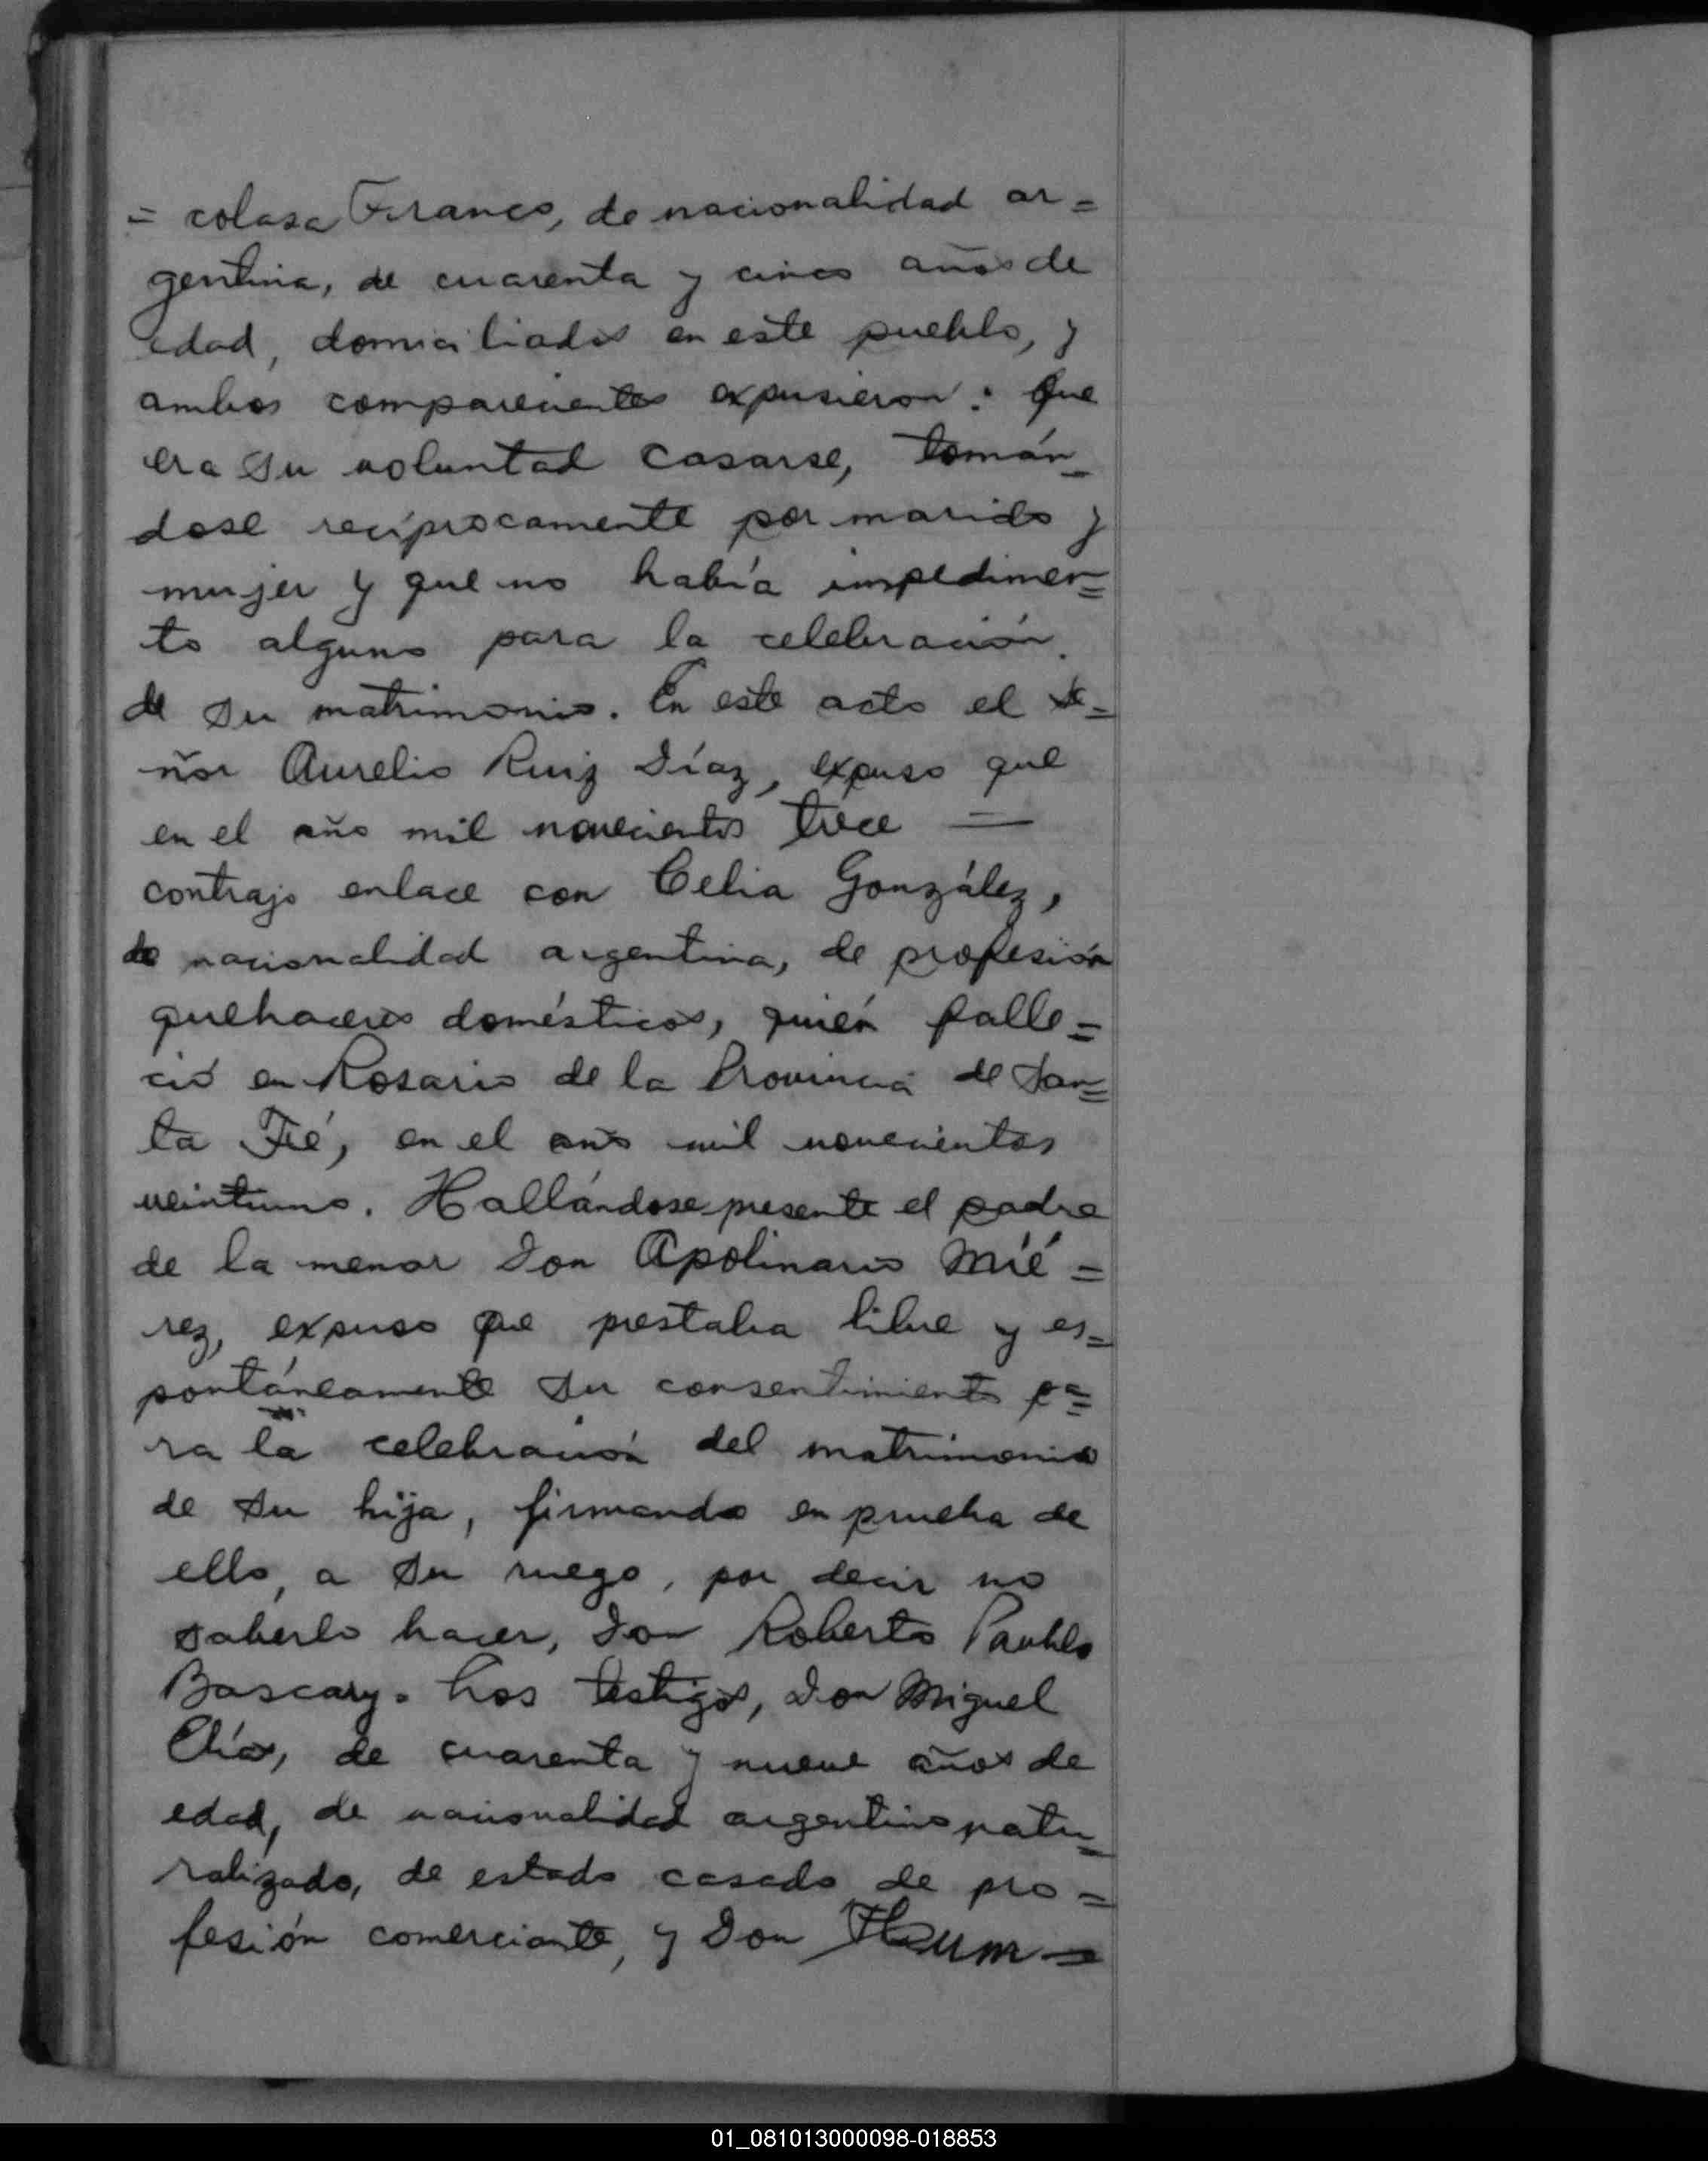 = colasa Franco, de nacionalidad ar=
gentina, de cuarenta y cinco años de
edad, domiciliados en este pueblo, y
ambos comparecientes expusieron: Que
era su voluntad casarse, tomán_
dose recíprocamente por marido y
mujer y que no había impedimen=
to alguno para la celebración.
de su matrimonio. En este acto el se=
ñor Aurelio Ruiz Díaz, expuso que
en el año mil novecientos trece =
contrajo enlace con Celia González,
de nacionalidad argentina, de profesión
quehaceres domésticos, quién falle=
ció en Rosario de la Provincia de San=
ta Fé, en el año mil novecientos
veintiuno. Hallándose presente el padre
de la menor Don Apolinario Mié=
rez, expuso que prestaba libre y es=
pontáneamente su consentimiento pa=
ra la celebración del matrimonio
de su hija, firmando en prueba de
ello, a su ruego, por decir no
saberlo hacer, Don Roberto Paublo
Bascary. Los testigos, Don Miguel
Elías, de cuarenta y nueve años de
edad, de nacionalidad argentino natu_
ralizado, de estado casado de pro=
fesión comerciante, y Don
01_081013000098-018853